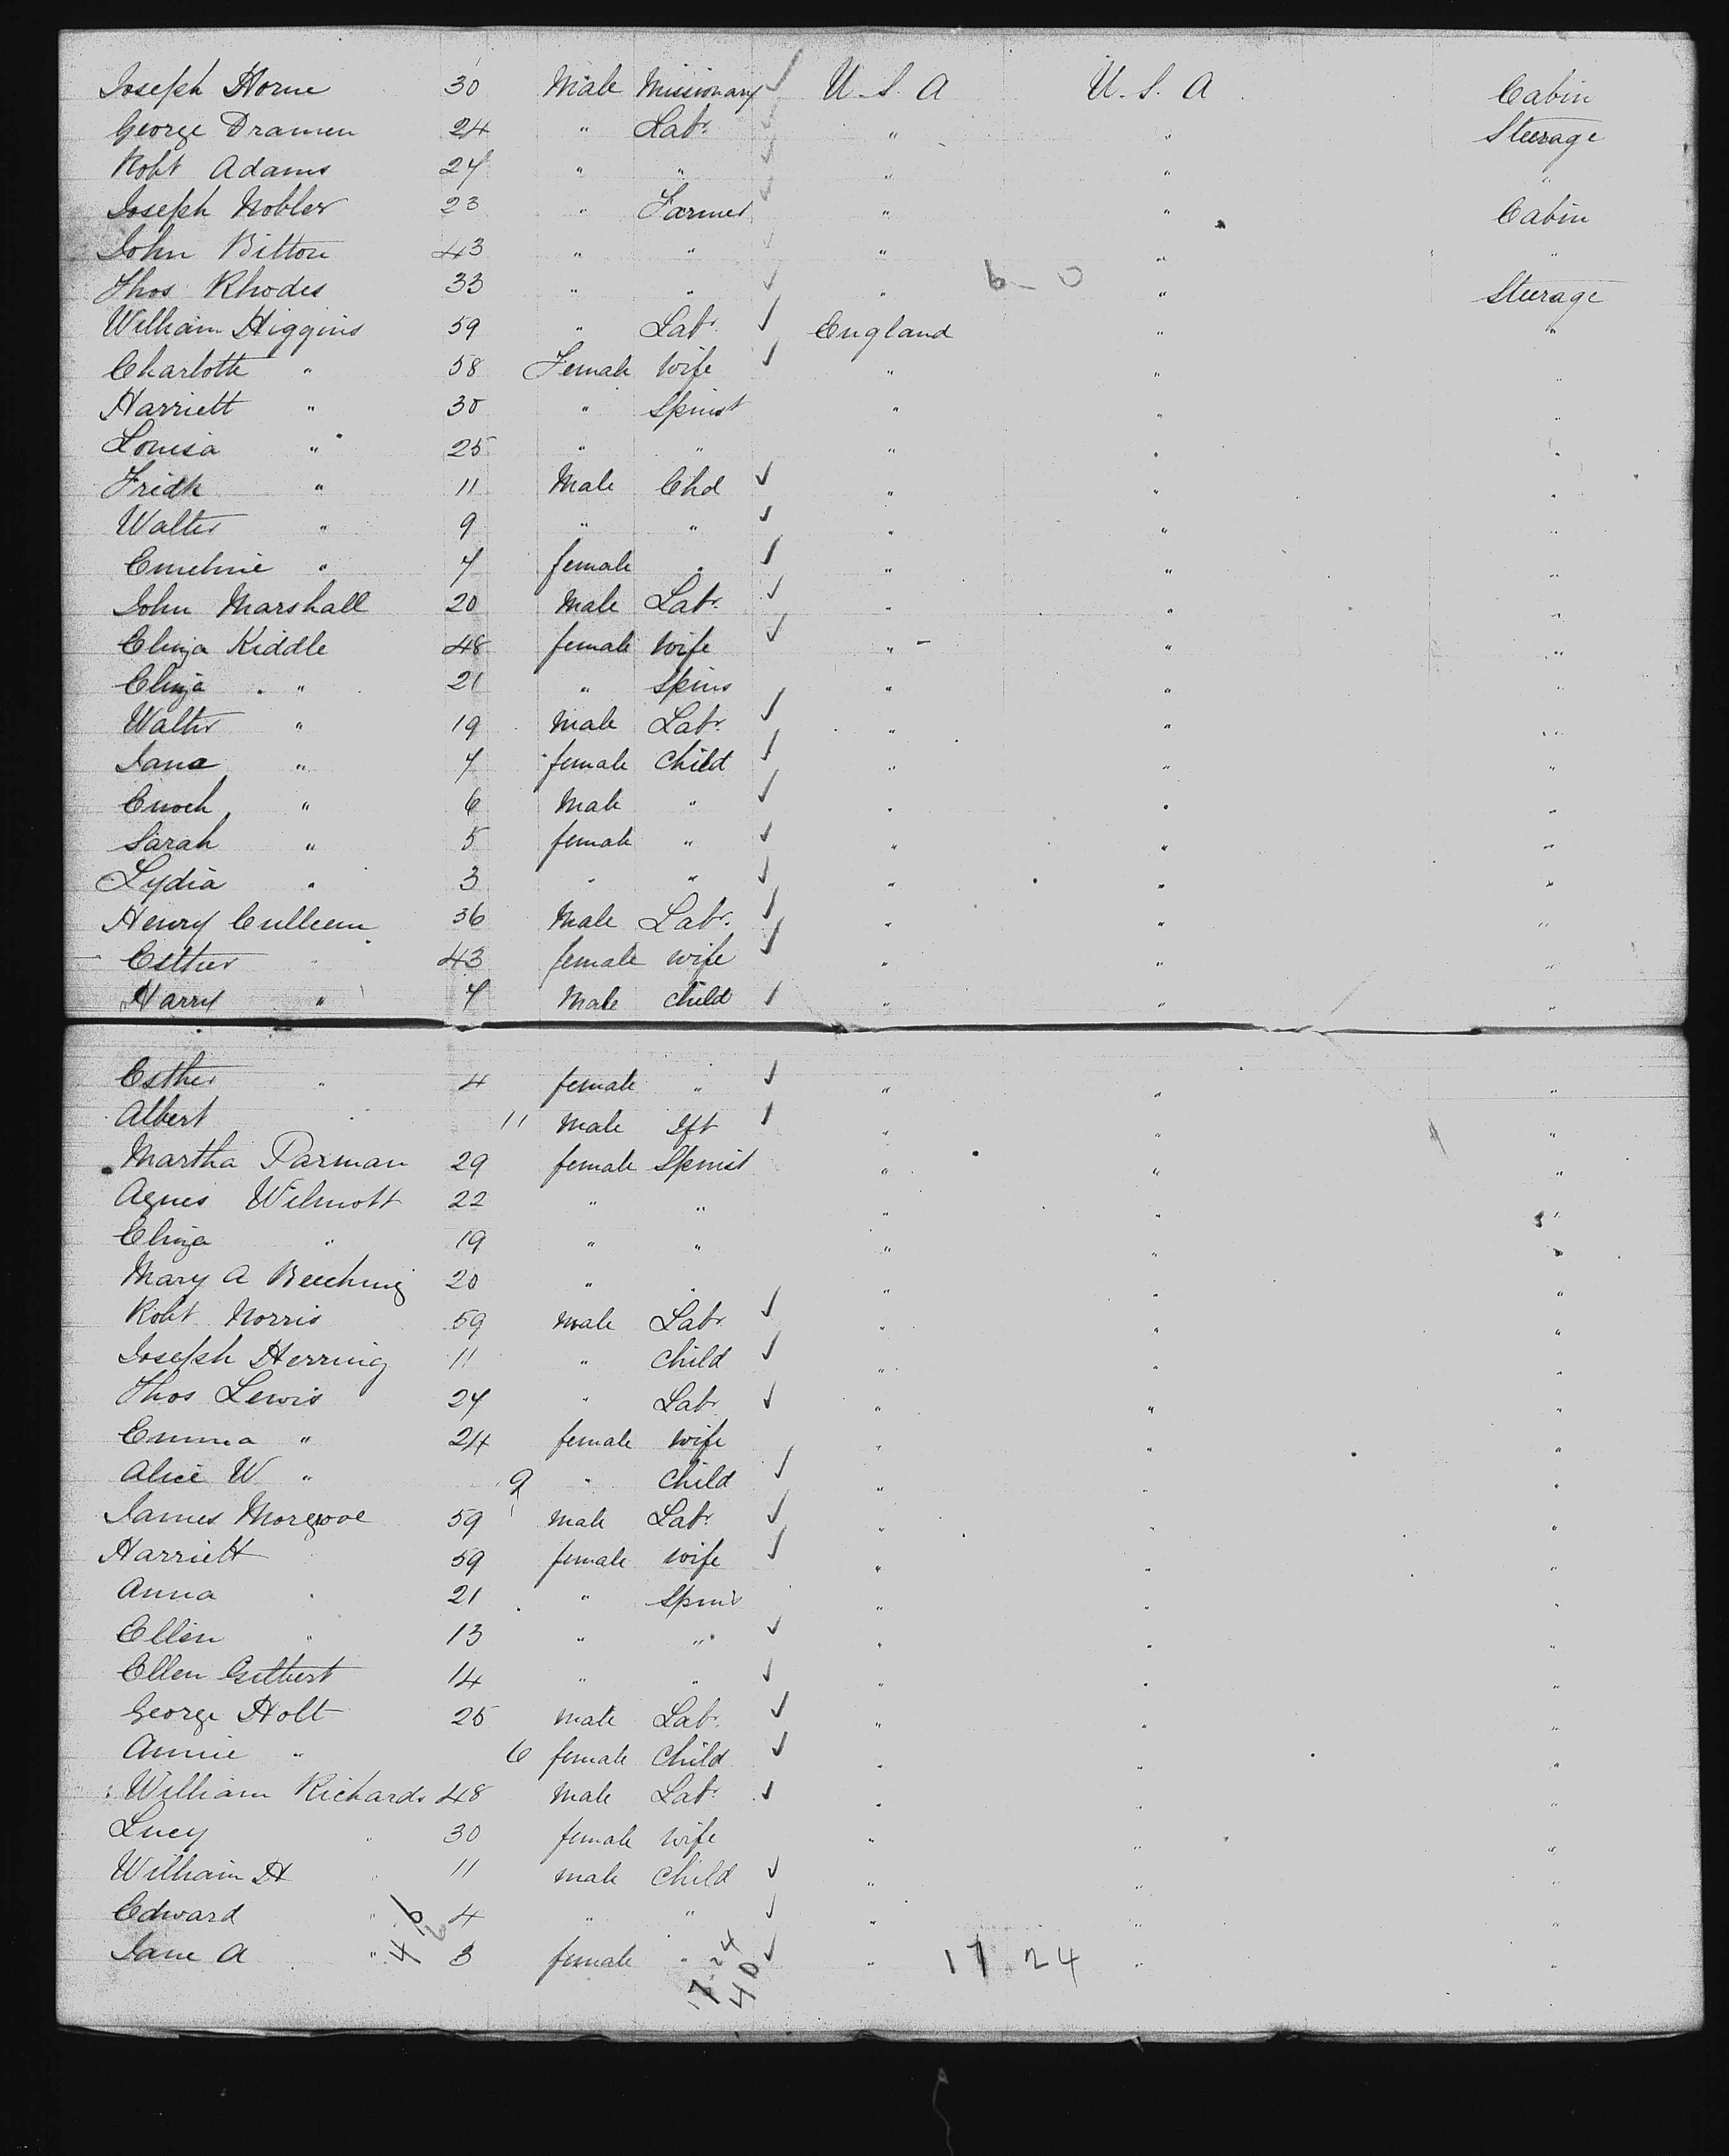 Joseph Horne 30 Male Missionary ✓ U.S.A U.S.A Cabin
George Dramen 24 " Labr ✓ " " Steerage
Robt Adams 27 " " ✓ " " "
Joseph Nobler 23 " Farmer ✓ " " Cabin
John Bitton 43 " " ✓ " " "
Thos Rhodes 33 " " ✓ " 6 - 0 " Steerage
William Higgins 59 " Labr ✓ England " "
Charlotte " 58 Female Wife ✓ " " "
Harriett " 30 " Spinst " " "
Louisa " 25 " " " " "
Fridk " 11 Male Chd ✓ " " "
Walter " 9 " " ✓ " " "
Emeline " 7 female " ✓ " " "
John Marshall 20 Male Labr ✓ " " "
Eliza Kiddle 48 female Wife ✓ " - " "
Eliza " 21 " Spins " " "
Walter " 19 Male Labr ✓ " " "
Jane " 7 female Child ✓ " " "
Enoch " 6 Male " ✓ " " "
Sarah " 5 female " ✓ " " "
Lydia " 3 " " ✓ " " "
Henry Cullum 36 Male Labr ✓ " " "
Esther " 43 female Wife ✓ " " "
Harry " 7 Male Child ✓ " " "
Esther " 4 female " ✓ " " "
Albert " 11 Male Ift ✓ " " "
Martha Parman 29 female Spinist " " "
Agnes Wilmott 22 " " " " "
Eliza " 19 " " " " "
Mary A Beeching 20 " " " " "
Robt Norris 59 Male Labr ✓ " " "
Joseph Herring 11 " Child ✓ " " "
Thos Lewis 27 " Labr ✓ " " "
Emma " 24 female Wife " " "
Alice W " 9 " Child ✓ " " "
James 59 Male Labr ✓ " " "
Harriett 59 female Wife ✓ " " "
Anna " 21 " Spins " " "
Ellen " 13 " " ✓ " " "
Ellen Gilbert 14 " " ✓ " " "
George Holt 25 Male Labr ✓ " " "
Annie " 6 female Child ✓ " " "
William Richards 48 Male Labr ✓ " " "
Lucy " 30 female Wife " " "
William H " 11 Male Child ✓ " " "
Edward " 6 4 " " ✓ " " "
Jane A " 4 3 female " ✓ " 17 24 " "
17 24
40